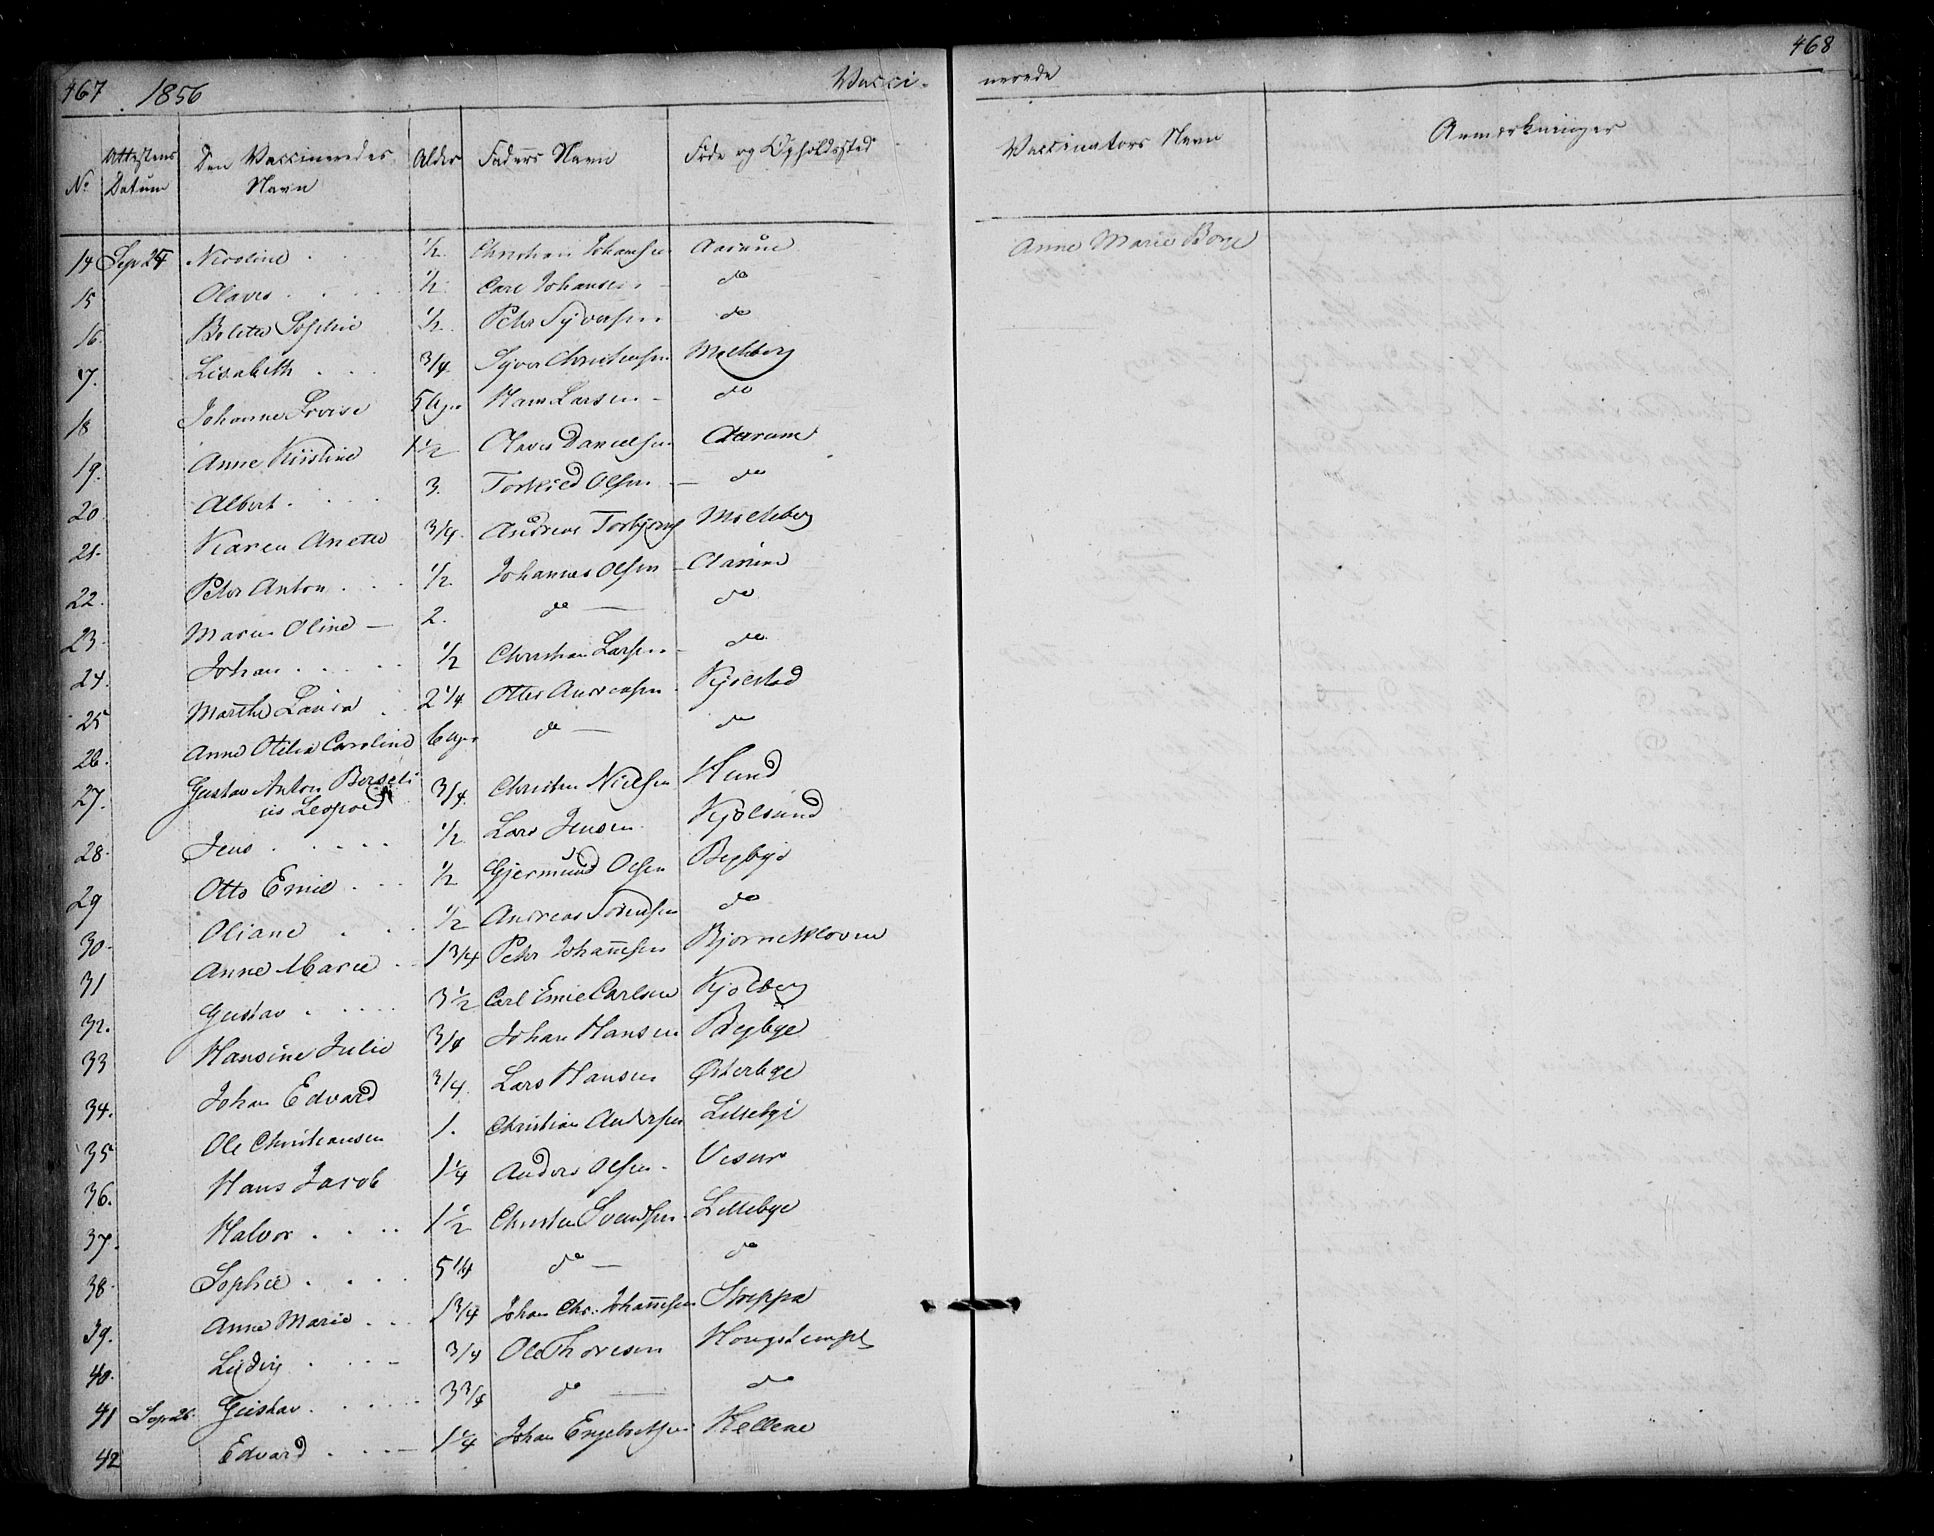 467 1856 Vacci-
nerede 468
No Attestens Datum Den Vaccineredes Navn Alder Faders Navn Føde og Opholdssted Vaccinators Navn Anmerkninger
14 Sep 24 Nicoline . . 1/2 Christian Johansen Aarum Anne Marie Borge
15 Olaves . . . 1/2 Carl Johansen do
16. Bolette Sophie 1/2 Peter Syversen do
17. Lisabeth . . . 3/4 Syver Christensen Moeleberg
18 Johanne Lovise 5 Ugr Hans Larsen - do
19. Anne Kirstine 1 1/2 Olaves Danielsen Aarum
20 Albert . . . 3. Torkild Olsen - do
21. Karen Anette 3/4. Andreas Torbjørns
22. Peter Anton . . . 1/2 Johannes Olsen - Aarum
23. Maren Oline - 2. do - do
24. Johan . . . . . 1/2 Christian Larsen - do
25 Marthe Lauisa . 2 1/4 Otter Andreasen Kjølstad
26. Anne Otilia Caroline 6 Ugr do - do
27. Gustav Anton Berseli 3/4 Christen Nielsen Hund
us Leopold
28. Jens . . . . . 1/2 Lars Jensen Kjølsund
29 Otto Emil . . . 1/2 Gjermund Olsen Begbye
30. Oliane . . . 1/2 Andreas Sørensen do
31 Anne Marie . . 1 3/4 Peter Johannesen Bjørnekloven
32. Gustav . . . . 3 1/2 Carl Emil Carlsen Kjølberg
33 Hansine Julie 3/4 Johan Hansen Begbye
34. Johan Edvard 3/4 Lars Hansen Østerbye
35 Ole Christiansen 1. Christian Andersen Lillebye
36. Hans Jacob 1 1/4 Anders Olsen - Visur
37. Halvor . . . . 1 1/2 Christen Svendsen Lillebye
38. Sophie . . . . 5 1/4 do - do
39. Anne Marie . . . 1 3/4 Johan Chr. Johannesen Stoppa
40. Ludvig . . . - 3/4 Ole Thoresen
41 Sep 26. Gustav . . . . . 3 3/4 do - do
42 Edvard . . . - 1 1/4 Johan Engebretsen Kellene